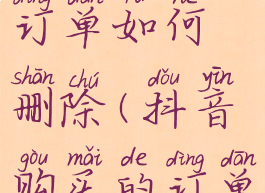 订单如何
shān chú dǒu yīn
删除(抖音
gòu mǎi de dìng dān
购买的订单